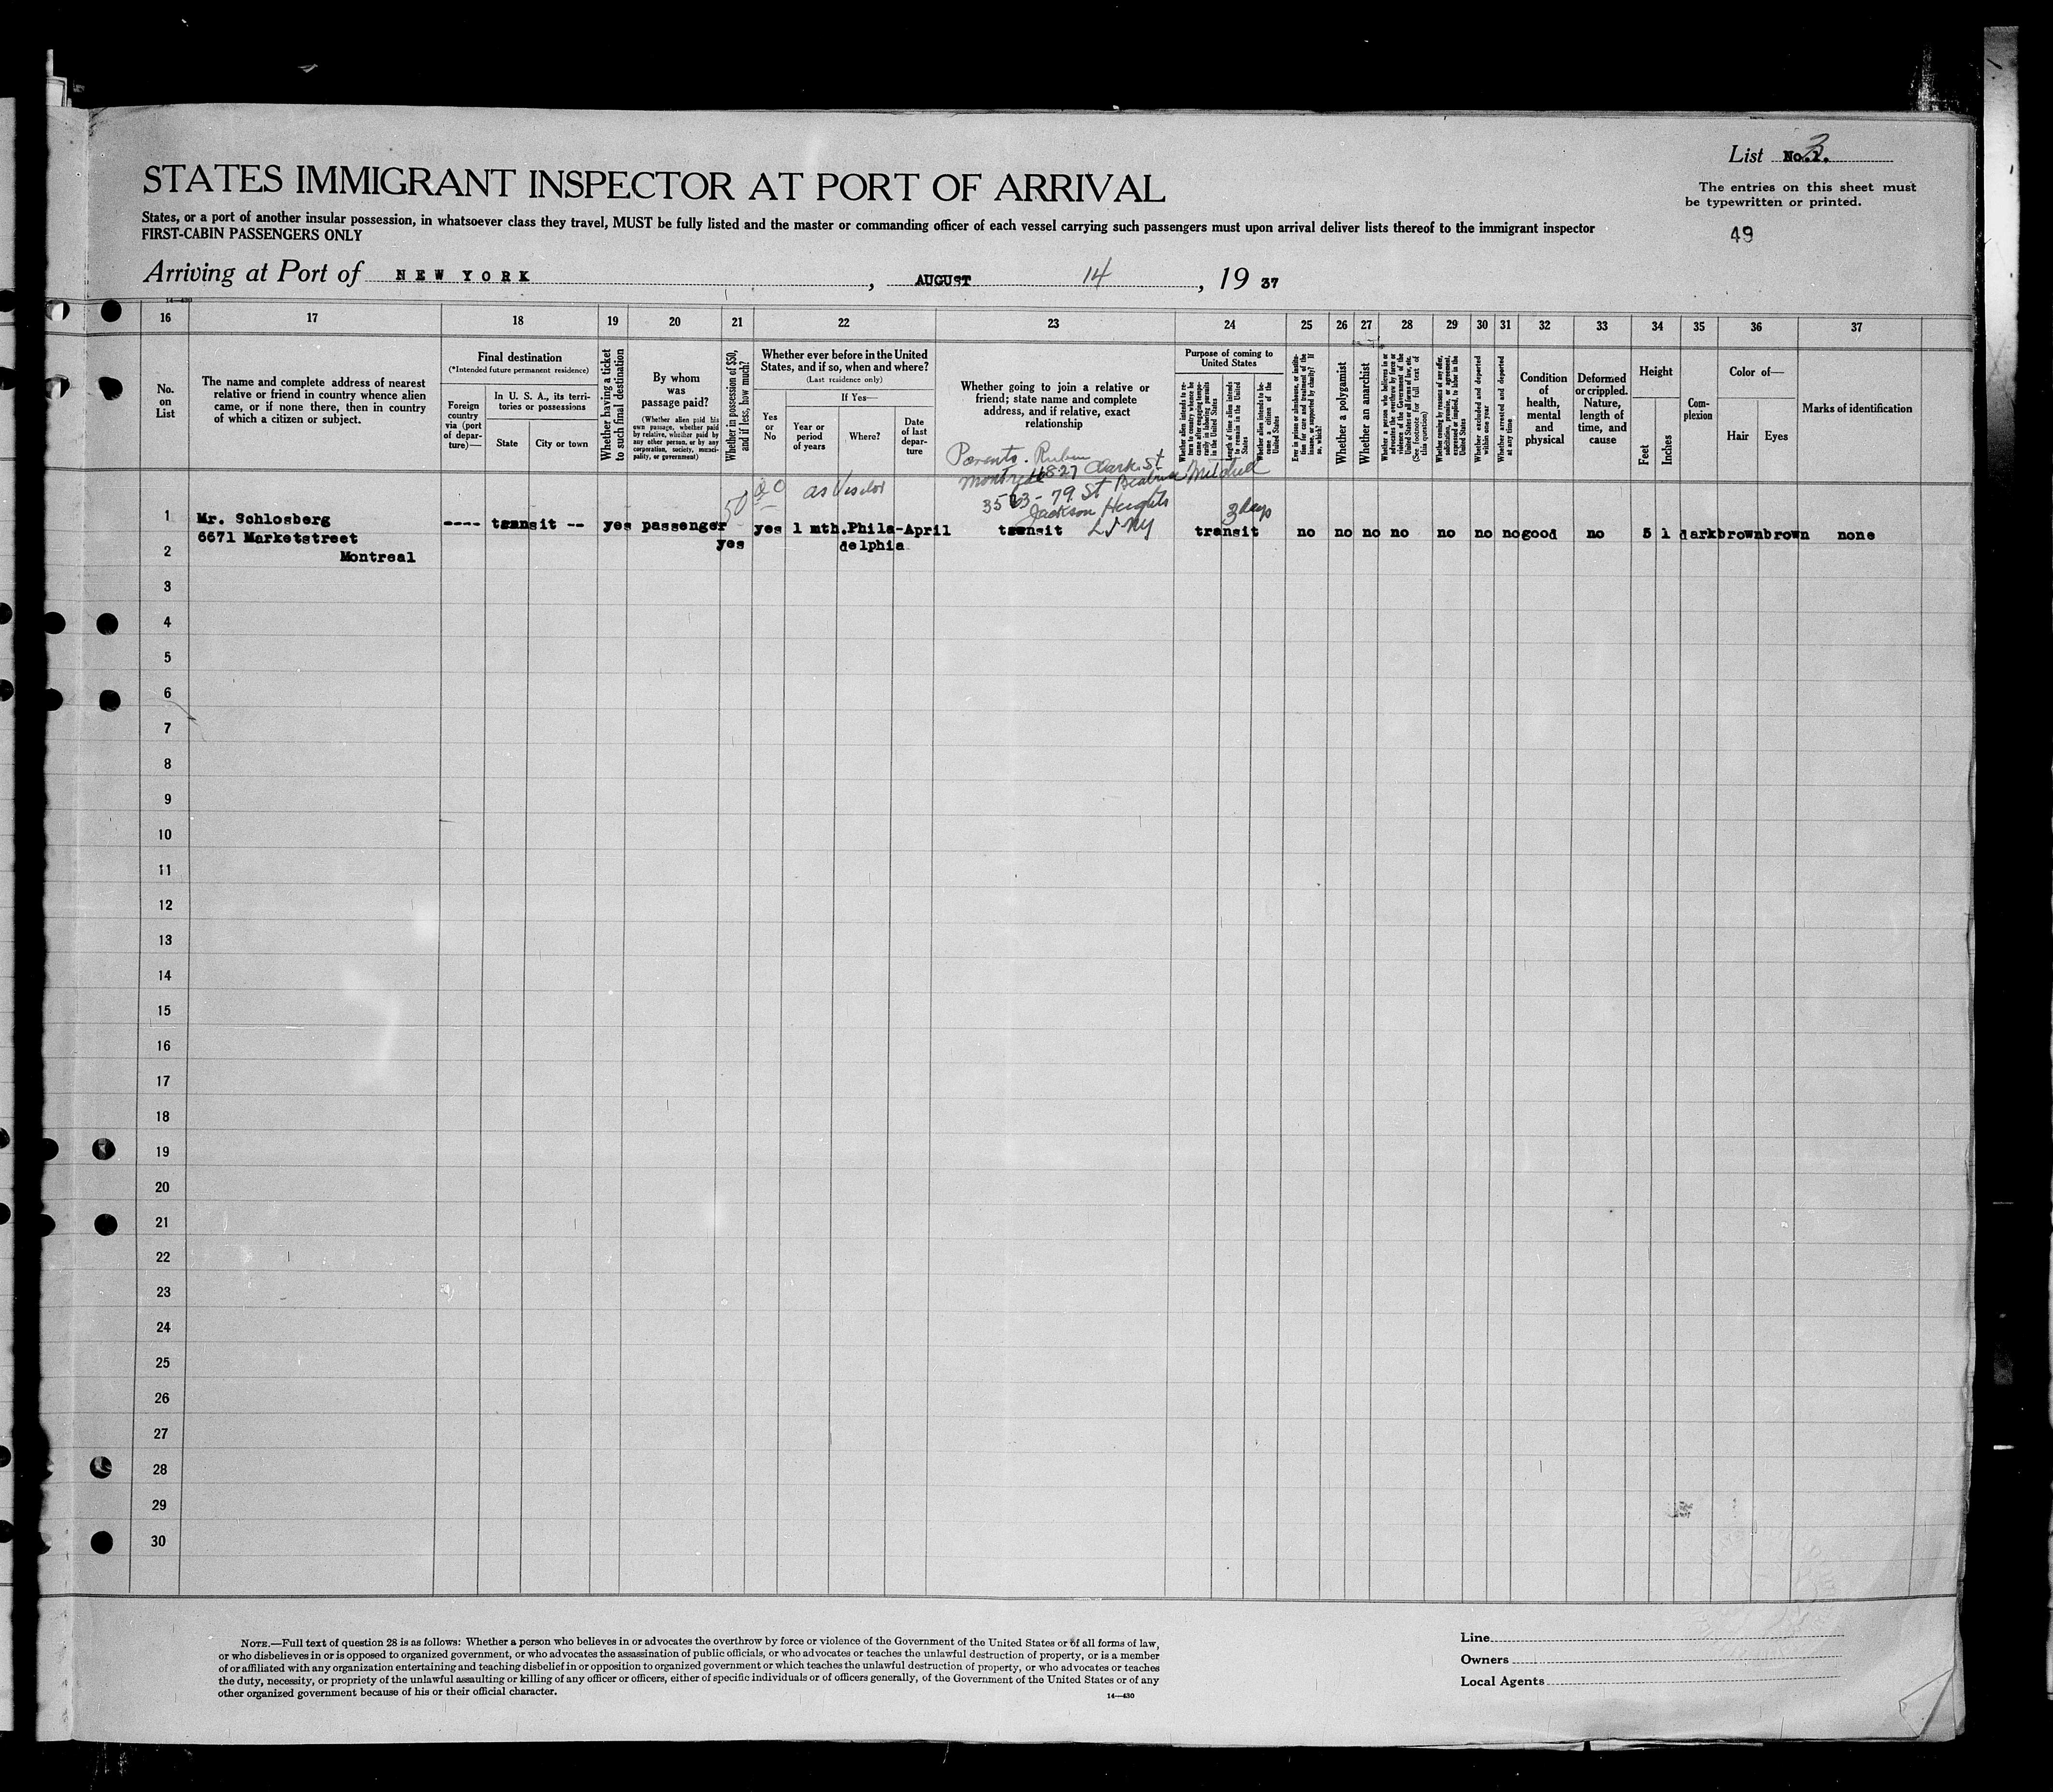 List No. 1. 3
The entries on this sheet must
be typewritten or printed.
49
STATES IMMIGRANT INSPECTOR AT PORT OF ARRIVAL
States, or a port of another insular possession, in whatsoever class they travel, MUST be fully listed and the master or commanding officer of each vessel carrying such passengers must upon arrival deliver lists thereof to the immigrant inspector
FIRST-CABIN PASSENGERS ONLY
Arriving at Port of NEW YORK, AUGUST 14, 19 37
14—430
16 17 18 19 20 21 22 23 24 25 26 27 28 29 30 31 32 33 34 35 36 37
No.
on
List
The name and complete address of nearest
relative or friend in country whence alien
came, or if none there, then in country
of which a citizen or subject.
Final destination
(*Intended future permanent residence)
Foreign
country
via (port
of depar-
ture)—
In U. S. A., its terri-
tories or possessions
State
City or town
Whether having a ticket
to such final destination
By whom
was
passage paid?
(Whether alien paid his
own passage, whether paid
by relative, whether paid by
any other person, or by any
corporation, society, munici-
pality, or government)
Whether in possession of $50,
and if less, how much?
Whether ever before in the United
States, and if so, when and where?
(Last residence only)
Yes
or
No
If Yes—
Year or
period
of years
Where?
Date
of last
depar-
ture
Whether going to join a relative or
friend; state name and complete
address, and if relative, exact
relationship
Purpose of coming to
United States
Whether alien intends to re-
turn to country whence he
came after engaging tempo-
rarily in laboring pursuits
in the United States
Length of time alien intends
to remain in the United
States
Whether alien intends to be-
come a citizen of the
United States
Ever in prison or almshouse, or institu-
tion for care and treatment of the
insane, or supported by charity? If
so, which?
Whether a polygamist
Whether an anarchist
Whether a person who believes in or
advocates the overthrow by force or
violence of the Government of the
United States or all forms of law, etc.
(See footnote for full text of
this question)
Whether coming by reason of any offer,
solicitation, promise, or agreement,
expressed or implied, to labor in the
United States
Whether excluded and deported
within one year
Whether arrested and deported
at any time
Condition
of
health,
mental
and
physical
Deformed
or crippled.
Nature,
length of
time, and
cause
Height
Feet
Inches
Com-
plexion
Color of—
Hair
Eyes
Marks of identification
Parents. Ruben
Montreal 6827 Clark St
3513 - 79 St Beatrice Mitchell
Jackson Heights
L I NY
50 as Visitor
3 days
1 Mr. Schlosberg ---- transit -- yes passenger yes 1 mth. Phila-April transit transit no no no no no no no good no 5 1 dark brown brown none
6671 Marketstreet yes delphia
2 Montreal
3
4
5
6
7
8
9
10
11
12
13
14
15
16
17
18
19
20
21
22
23
24
25
26
27
28
29
30
NOTE.—Full text of question 28 is as follows: Whether a person who believes in or advocates the overthrow by force or violence of the Government of the United States or of all forms of law,
or who disbelieves in or is opposed to organized government, or who advocates the assassination of public officials, or who advocates or teaches the unlawful destruction of property, or is a member
of or affiliated with any organization entertaining and teaching disbelief in or opposition to organized government or which teaches the unlawful destruction of property, or who advocates or teaches
the duty, necessity, or propriety of the unlawful assaulting or killing of any officer or officers, either of specific individuals or of officers generally, of the Government of the United States or of any
other organized government because of his or their official character.
14—430
Line
Owners
Local Agents